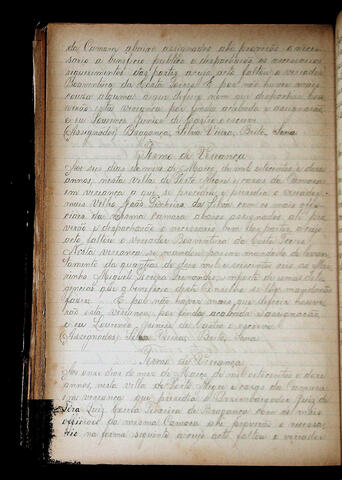 da Camara abaixo assignados pho proverão o neces-
sario a beneficio publico e despachárão os necessarios
requerimentos das partes a cujo acto faltou o vereador
Boaventura da Costa Torres. E por não haver mais
cousa alguma a que deferir nem que despachar houve-
rão esta vereança por finda acabada e assignarão
e eu Lourenço Junior de Castro o escrevi.
(Assignados) Bragança, Silva Vieira, Brito, Sena
Termo de Vereança
Aos seis dias do mez de Março de mil oitocentos e doze
annos, nesta villa de Porto Alegre e casas da Camara
em vereança a que se procedeu, e presidiu o vereador
mais velho João Pereira da Silva com os mais offi-
ciaes da mesma camara abaixo assignados pho pro-
verão e despachárão o necessario, bem das partes a cujo
acto faltou o vereador Boaventura da Costa Torres.
Nesta vereança se mandou passar mandado de
da quantia de seis mil oitocentos reis
Miguel
gencias que a beneficio deste Concelho se lhe mandarão
fazer. E por não haver mais que deferir houve-
rão esta vereança por finda acabada e assignarão
e eu Lourenço Junior de Castro o escrevi.
(Assignados) Silva Vieira, Brito, Sena
Termo de Vereança
Aos onze dias do mez de Março de mil oitocentos e doze
annos, nesta villa de Porto Alegre e casas da Camara
em vereança que presidiu o Desembargador Juiz de
Fóra Luiz Corrêa Teixeira de Bragança com os mais
officiaes da mesma Camara pho proverão o necessa-
rio na forma seguinte a cujo acto faltou o vereador